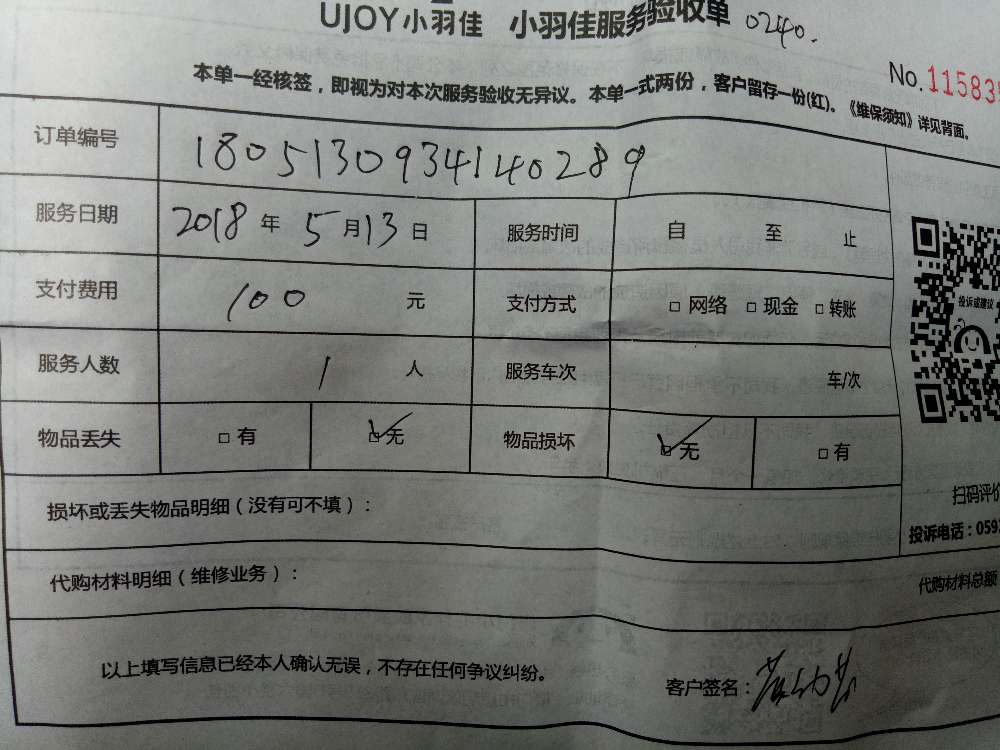 UJOY小羽佳 小羽佳服务验收单 0240.
No.115835
本单一经核签，即视为对本次服务验收无异议。本单一式两份，客户留存一份(红)。《维保须知》详见背面。
订单编号 1805130934140289
服务日期 2018 年 5 月 13 日 服务时间 自 至 止
支付费用 100 元 支付方式 □ 网络 □ 现金 □ 转账
投诉或建议
服务人数 1 人 服务车次 车/次
物品丢失 □ 有 □ 无 物品损坏 □ 无 □ 有
扫码评价
损坏或丢失物品明细（没有可不填）：
投诉电话：059
代购材料明细（维修业务）：
代购材料总额
以上填写信息已经本人确认无误，不存在任何争议纠纷。
客户签名：